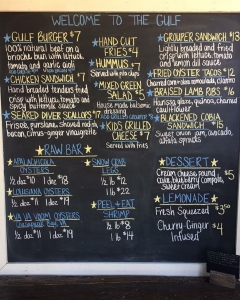 WELCOME TO THE GULF
GULF BURGER $7
100% natural beef on a
brioche bun with lettuce,
tomato and garlic aioli
CHICKEN SANDWICH $7
Hand breaded tenders fried
crisp with lettuce, tomato and
spicy buttermilk sauce
SEARED DIVER SCALLOPS $17
Frisee, parsley, shaved radish,
bacon, citrus-ginger vinaigrette
HAND CUT
FRIES $4
HUMMUS $7
Served with pita chips
MIXED GREEN
SALAD $5
House made balsamic
dressing
KIDS GRILLED
CHEESE
Served with fries
GROUPER SANDWICH $13
Lightly breaded and fried
crisp with lettuce, tomato
and lemon dill sauce
FRIED OYSTER TACOS $12
Charred corn slaw, lemonade, cilantro
BRAISED LAMB RIBS $16
Harissa glaze, quinoa, charred
BLACKENED COBIA
SANDWICH
Sweet onion jam, avocado,
sprouts
RAW BAR
APALACHICOLA
OYSTERS
1/2 doz $10 1 doz $18
LOUISIANA OYSTERS
1/2 doz $11 1 doz $19
VA VA VOOM OYSTERS
Chesapeake Bay, VA
1/2 doz $11 1 doz $19
SNOW CRAB
LEGS
1/2 lb $12
1 lb $22
PEEL + EAT
SHRIMP
1/2 lb $8
1 lb $14
DESSERT
Cream cheese pound $5
cake, blueberry compote,
sweet cream
LEMONADE
Fresh Squeezed $3.50
Cherry-Ginger $4
Infused